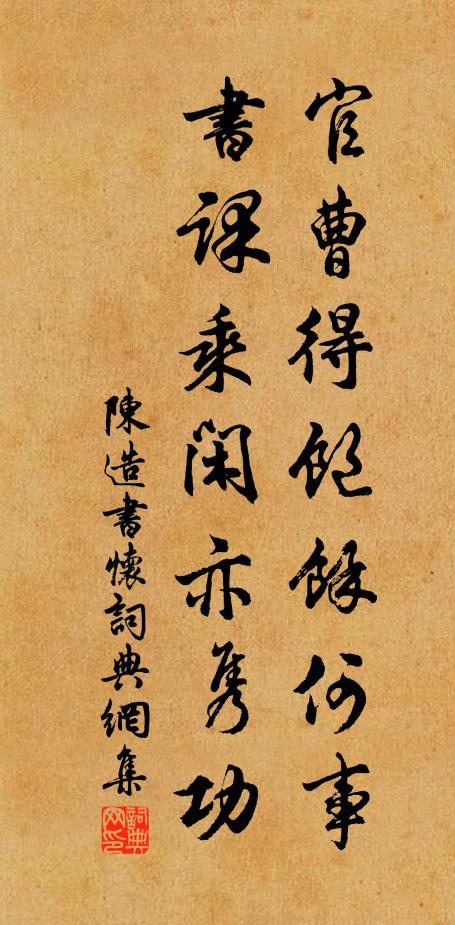 官曹得飽餘何事
書課乘閑亦雋功
陳造書懷詞典網集
詞典网印